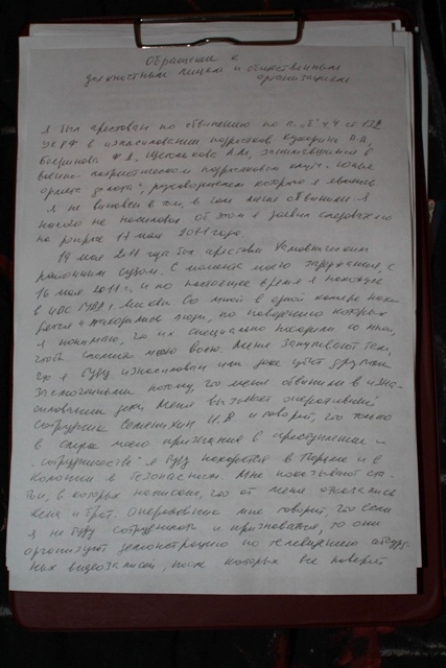 Обращение к
должностным лицам и общественным
организациям
Я был арестован по обвинению по п. „б" ч. 4 ст. 132
УК РФ в изнасиловании подростков
занимавшихся в
военно-патриотическом подростковом клубе
руководителем которого я являюсь
Я не виновен в том, в чем меня обвиняют. Я
никого не насиловал об этом я заявил следователю
на допросе 17 мая 2011 года.
19 мая 2011 года был арестован
районным судом. С момента моего задержания, с
16 мая 2011 г. и по настоящее время я нахожусь
в ИВС ГУВД г. Москвы. Со мной в одной камере
находились люди, по поведению которых
я понимаю, что их специально посадили со мной,
чтобы сломить мою волю. Меня запугивают тем,
что я буду изнасилован или даже убит другими
заключенными потому, что меня обвинили в изна-
силовании детей. Меня вызывает оперативный
сотрудник и говорит, что только
в случае моего признания в преступлении и
„сотрудничества" я буду находиться в тюрьме и в
колонии в безопасности. Мне показывают ста-
тьи, в которых написано, что от меня отказались
жена и брат. Оперативники мне говорят, что если
я не буду сотрудничать и признаваться, то они
организуют демонстрацию по телевидению абсурд-
ных видеозаписей, после которых все поверят